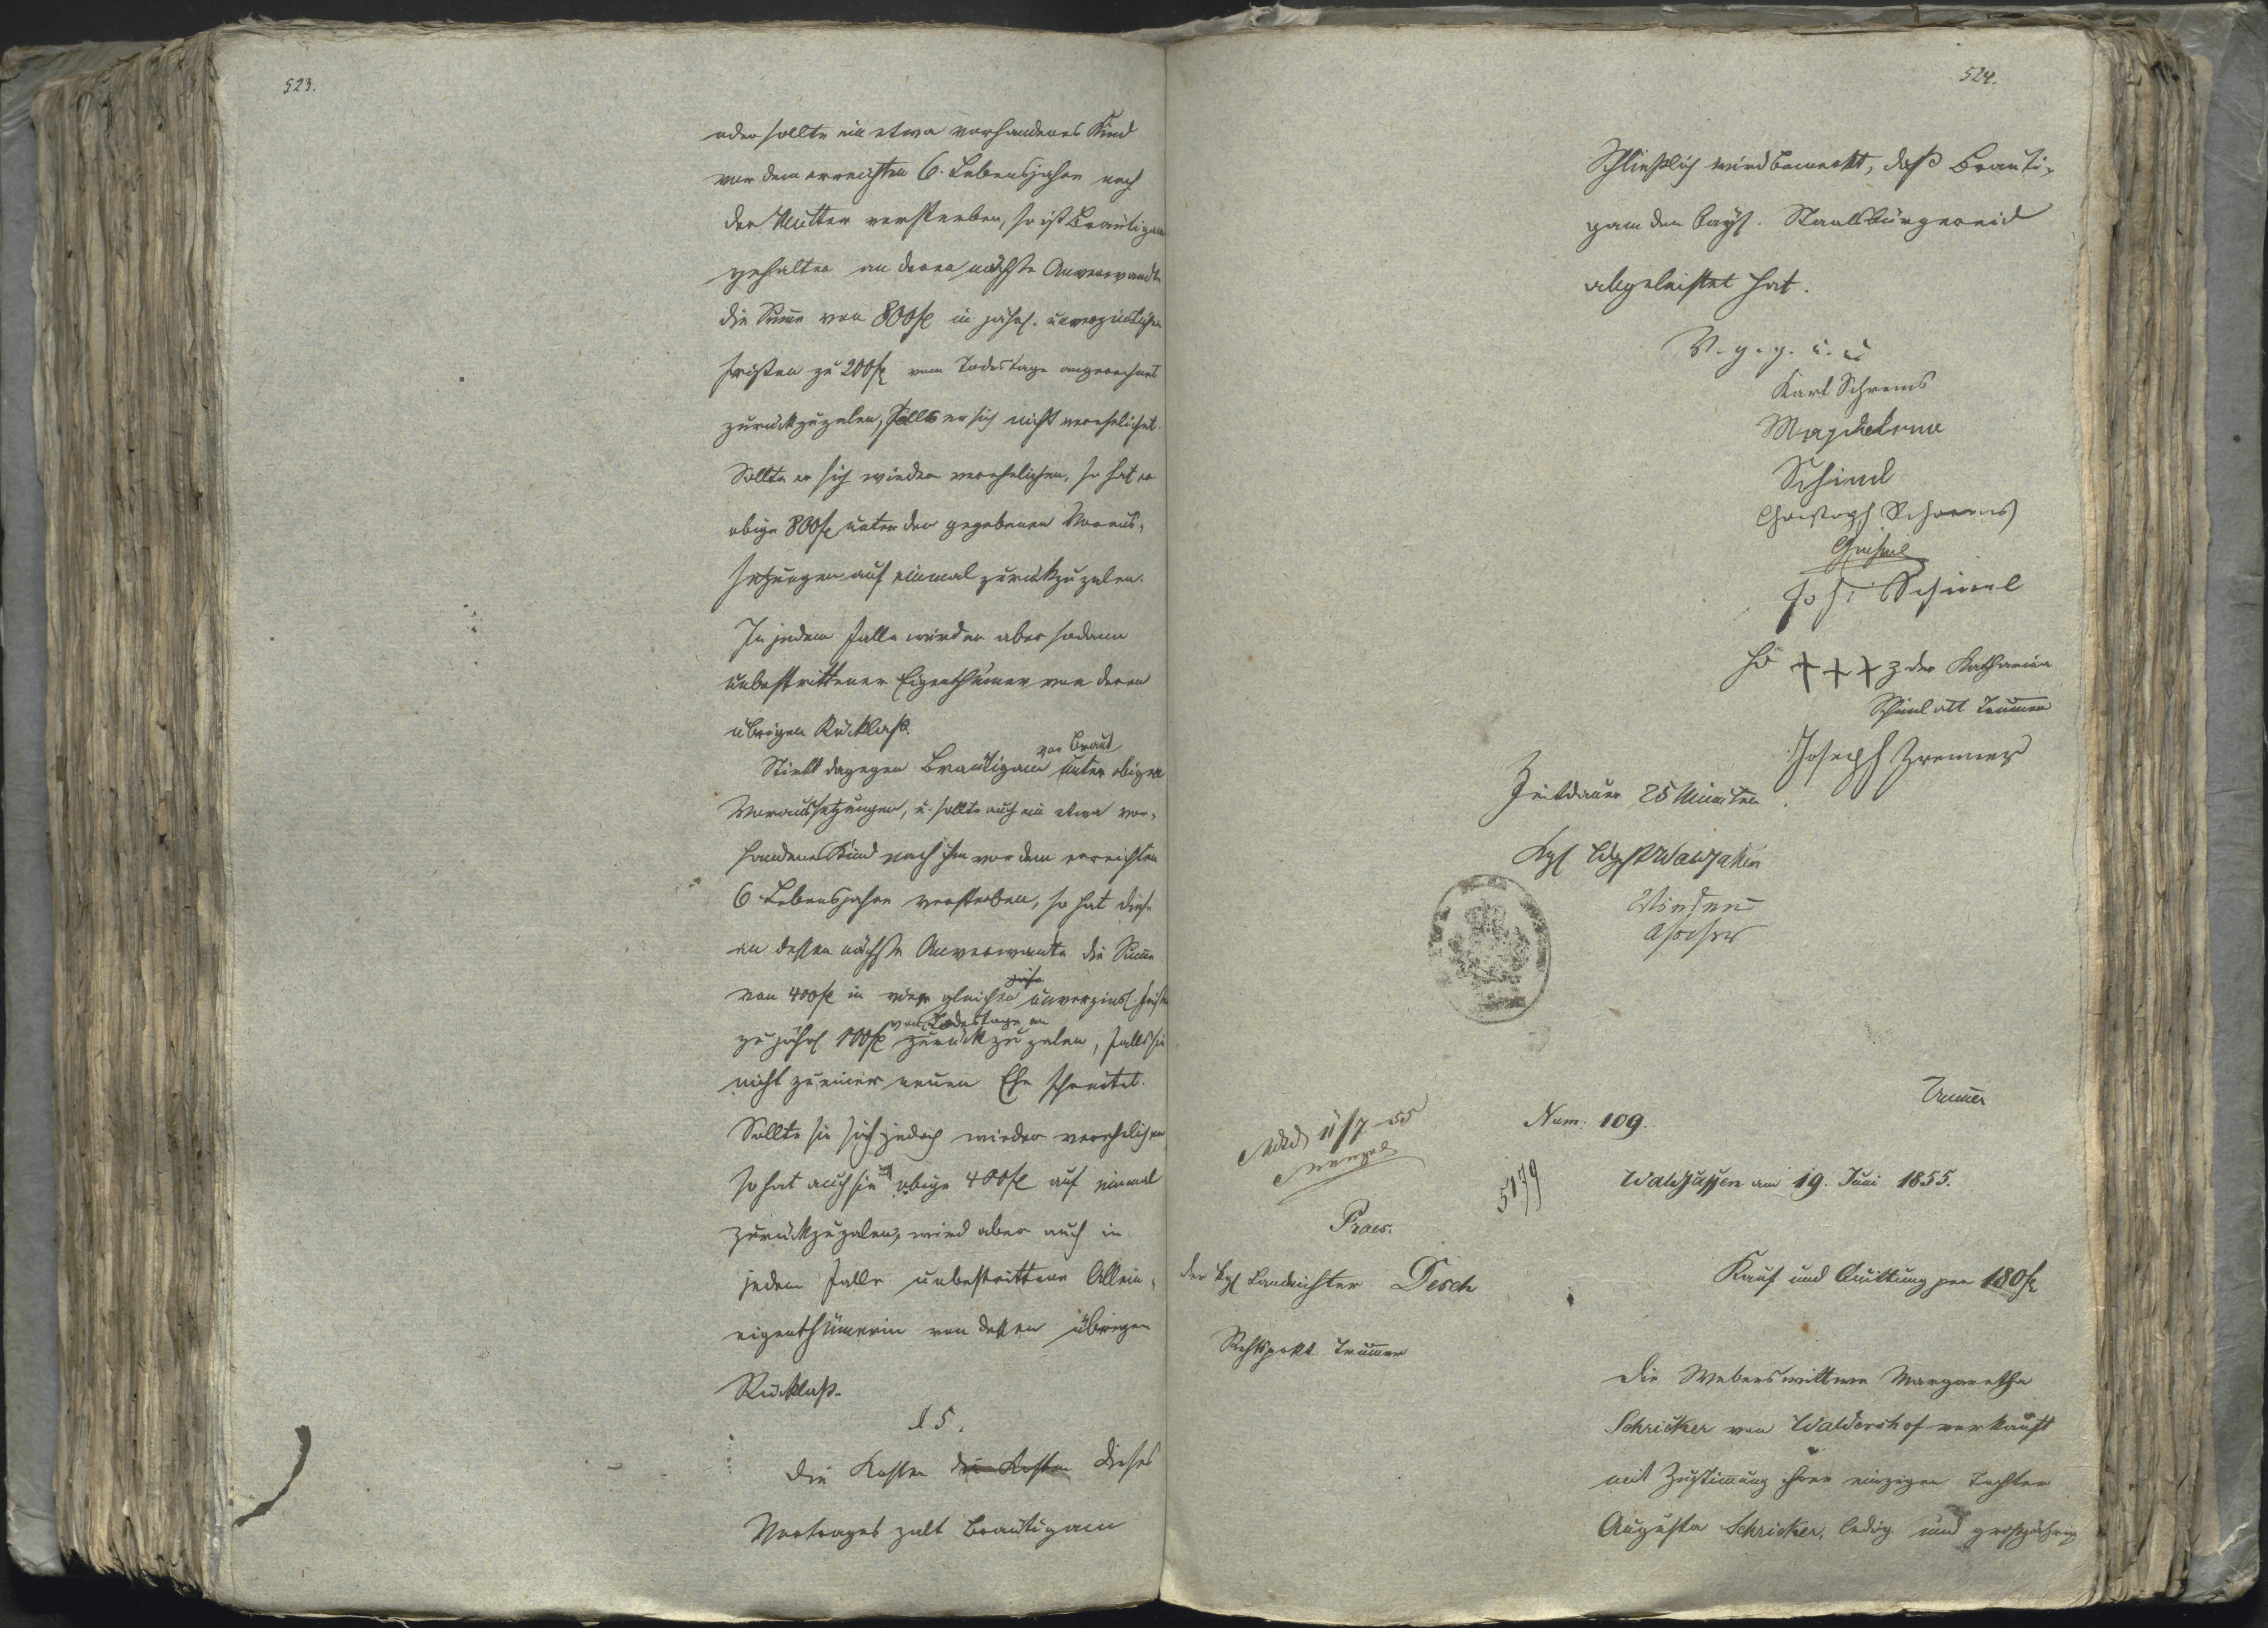 523.
oder sollte ein etwa vorhandenes Kind
vor dem erreichten 6. Lebensjahre nach
der Mutter versterben, so ist Bräutigam
gehalten an deren nächste Anverwandte
die Summe von 800 fl in jährl. unverzinslichen
Fristen zu 200 fl vom Todestage angerechnet
zurückzuzalen, falls er sich nicht verehelichet.
Sollte er sich wieder verehelichen, so hat er
obige 800 fl unter den gegebenen Voraus-
setzungen auf einmal zurükzuzalen.
In jedem Falle wird er aber sodann
unbestrittener Eigenthümer von deren
übrigen Rücklaß.
vor Braut
Stirbt dagegen Bräutigam unter obigen
Voraussetzungen, u. sollte auch ein etwa vor-
handenes Kind nach ihm vor dem erreichten
6. Lebensjahre versterben, so hat diese
an dessen nächste Anverwandte die Summe
von 400 fl in gleichen unverzinsl. Fristen
vom Todestage an
zu jährl 100 fl zurückzuzalen, falls sie
nicht zu einer neuen Ehe schreitet.
Sollte sie sich jedoch wieder verehelichen
so hat auch sie obige 400 fl auf einmal
zurückzuzalen, wird aber auch in
jedem Falle unbestrittene Allein-
eigenthümerin von dessen übrigen
Rücklaß.
§ 5.
Die Kosten die Kosten dieses
Vertrages zalt Bräutigam
524.
Schließlich wird bemerkt, daß Bräuti-
gam den bayr. Staatsbürgereid
abgeleistet hat.
V. g. g. u. u
Karl Schrems
Magdelena
Schiml
Christoph Schrems
Joh: Schiml
Hd +++ z der Katharina
Schiml att Trumer
Joseph
Zeitdauer 25 Minuten.
Kgl Ldgcht Waldsassen
Assessor
Trumer
Num. 109.
11/7 55
5179
Waldsassen am 19. Juni 1855.
Praes.
der kgl Landrichter Desch
Rechtsprkt Trumer
Kauf und Quittung per 180 fl
Die Weberswittwe Margaretha
Schricker von Waldershof verkauft
mit Zustimmung ihrer einzigen Tochter
Augusta Schricker, ledig und großjährig